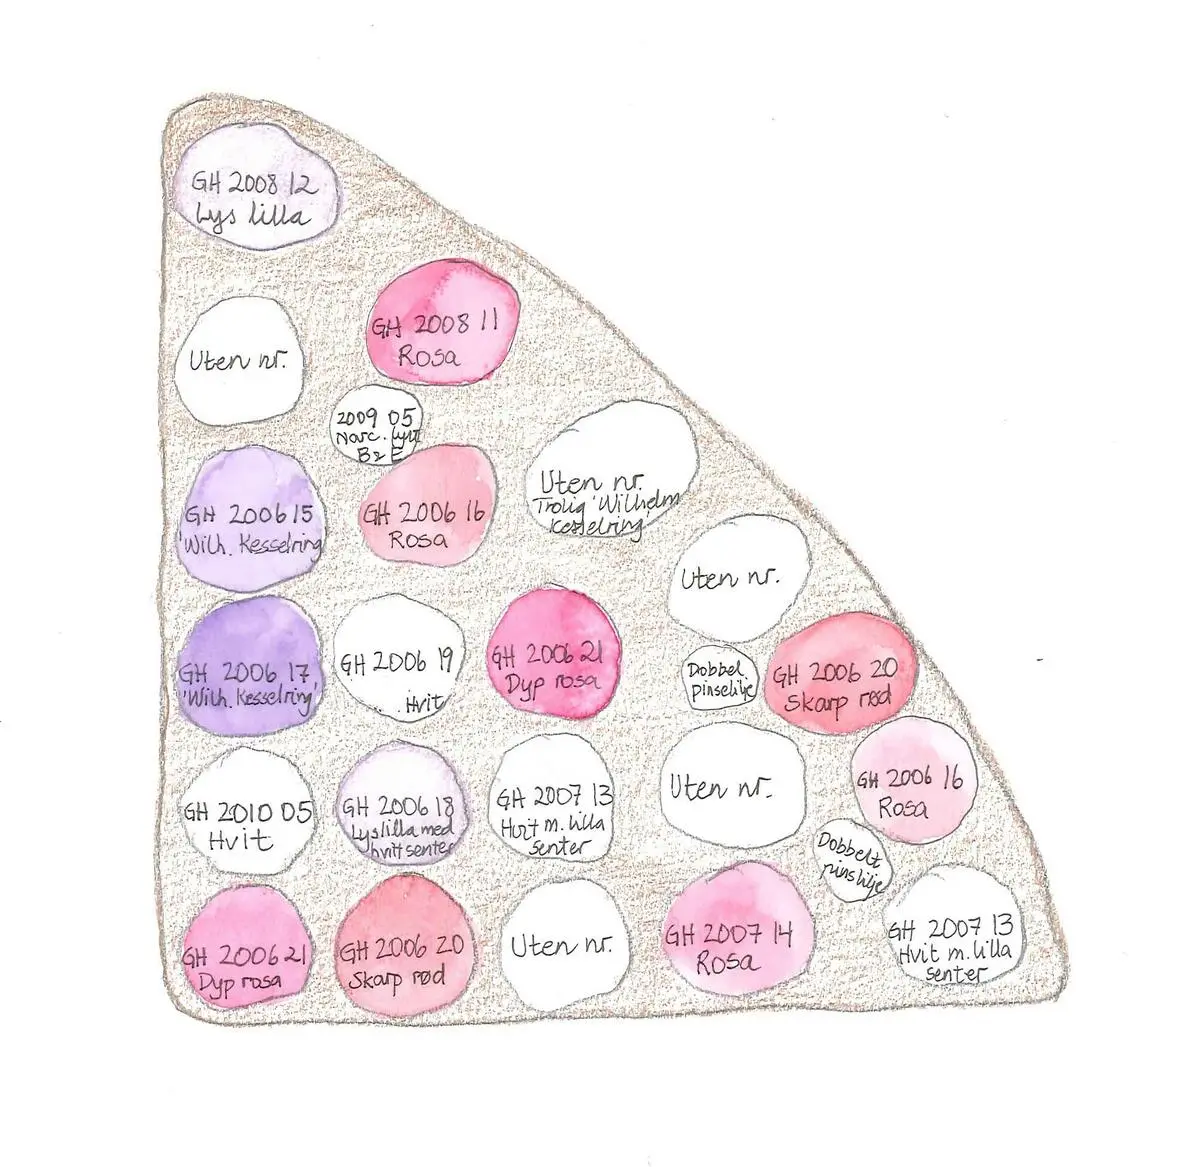 GH 2008 12
Lys lilla
GH 2008 11
Rosa
Uten nr.
2009 05
Narc.
B & E
Uten nr.
Trolig 'Wilhelm
Kesselring'
GH 2006 15
'Wilh. Kesselring
GH 2006 16
Rosa
Uten nr.
GH 2006 17
'Wilh. Kesselring'
GH 2006 19
Hvit
GH 2006 21
Dyp rosa
Dobbel
pinselilje
GH 2006 20
Skarp rød
GH 2010 05
Hvit
GH 2006 18
Lys lilla med
hvitt senter
GH 2007 13
Hvit m. lilla
senter
Uten nr.
GH 2006 16
Rosa
Dobbelt
pinslilje
GH 2006 21
Dyp rosa
GH 2006 20
Skarp rød
Uten nr.
GH 2007 14
Rosa
GH 2007 13
Hvit m. lilla
senter